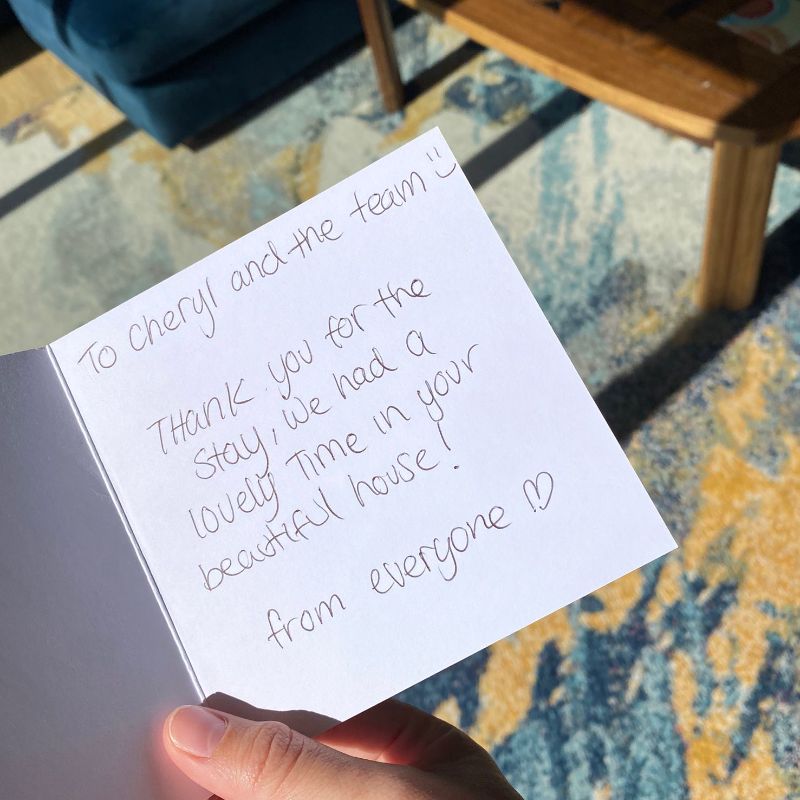 To Cheryl and the team :)
THank you for the
stay, we had a
lovely Time in your
beautiful house!
from everyone ♡